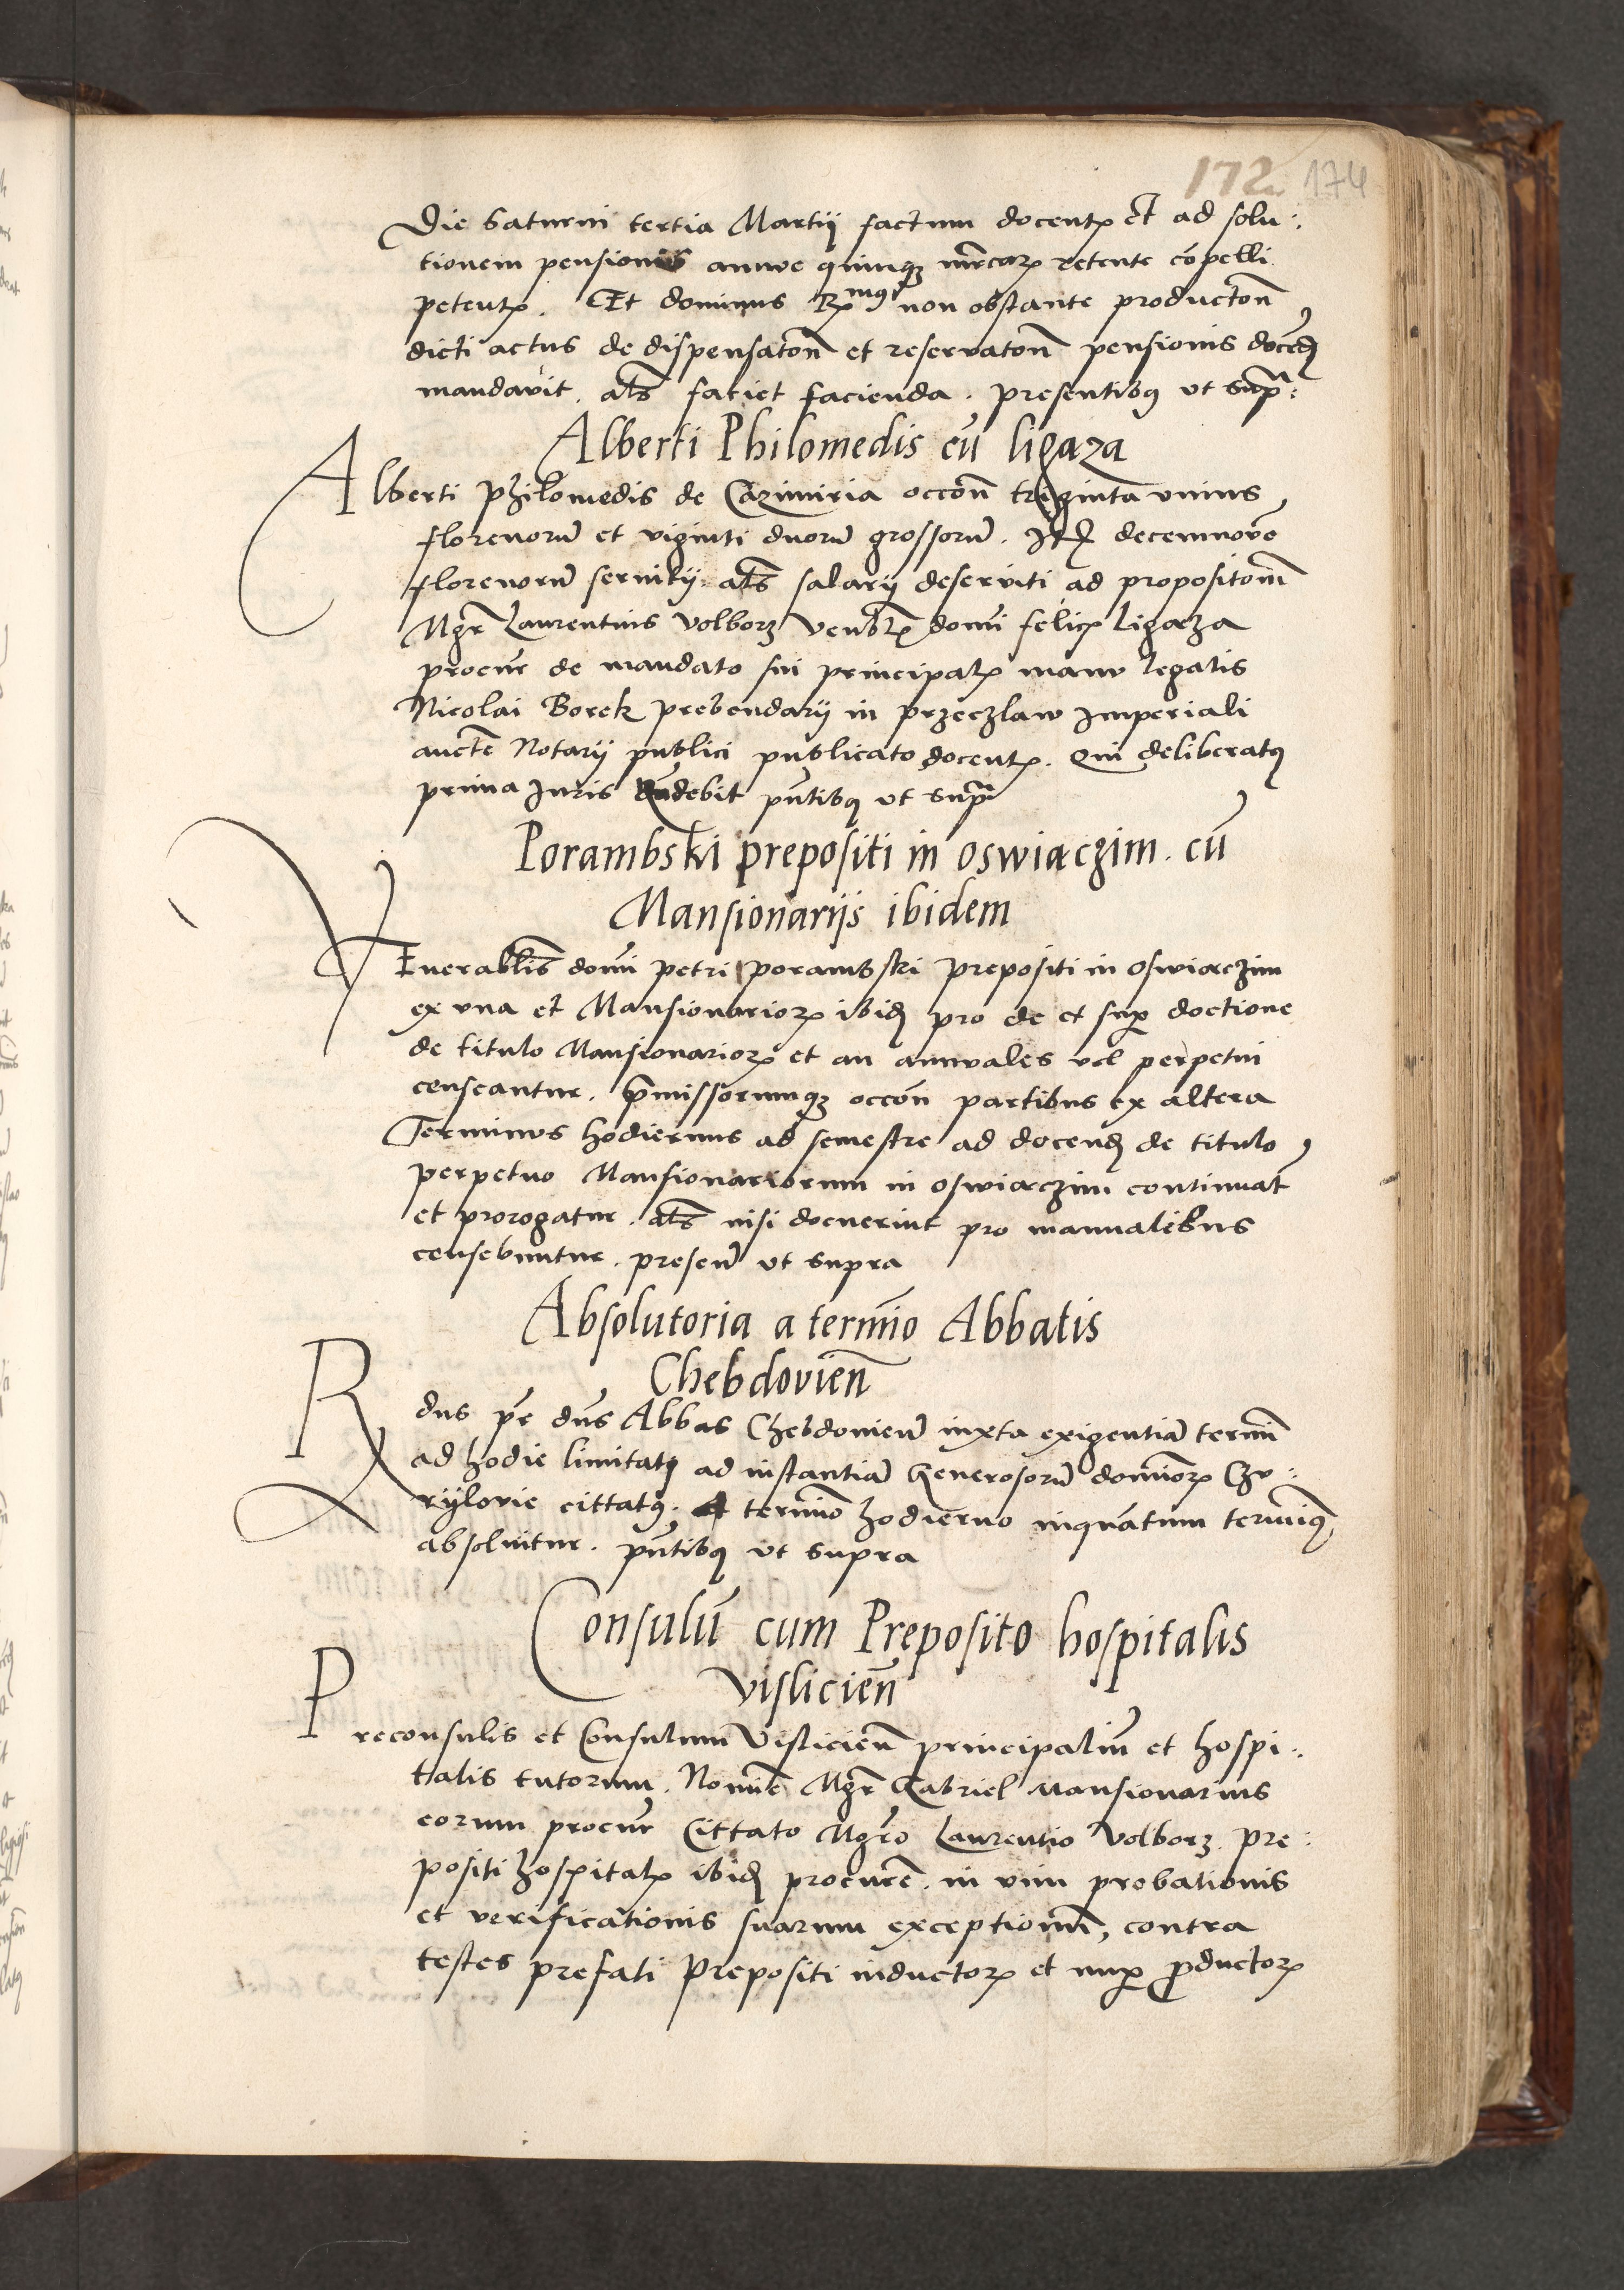 172 174
Die Saturni tertia Martij factum docentꝝ et ad solu:
tionem pensionis annue quinqꝫ mrcarꝝ retente cōpelli
petentꝝ. Et dominus Rmus non obstante productōn
dicti actus de dispensatōn et reservatōn pensionis docen̄
mandavit. als̄ faciet facienda. presentibꝰ ut supra:
Alberti Philomedis cū ligaza
Alberti Philomedis de Cazimiria occōn triginta unius
florenorū et viginti duorū grossorū. Itē decemnove
florenorū servitij als̄ salarij deserviti ad propositōnē
Mgr̄ Laurentius Volborz Venblꝝ domī felicꝝ Ligaza
procur̄ de mandato sui principalꝝ manu legalis
Nicolai Borek prebendarij in Przeczlaw Imperiali
aucte Notarij publici publicato docentꝝ. Qui deliberatꝰ
prima Juris Rn̄debit pn̄tibꝰ ut supra
Porambski prepositi in oswiaczim. cū
Mansionarijs ibidem
Venerablis̄ domī petri porambski prepositi in Oswiaczim
ex una et Mansionariorꝝ ibid̄ pro de et sup doctione
de titulo Mansionariorꝝ et an annuales vel perpetui
censeantur. p̄missorumqꝫ occōn partibus ex altera
Terminus hodiernus ad semestre ad docend̄ de titulo
perpetuo Mansionariorum in oswiaczim continuat̄
et prorogatur. als̄ nisi docuerint pro manualibus
censebuntur. presen̄ ut supra
Absolutoria a termīo Abbatis
Chebdovień
Rdus pr̄ dn̄s Abbas Chebdovien̄ iuxta exigentiā termī
ad hodie limitatꝰ ad instantiā Generosorū domīorꝝ Czu:
rylovie cittatꝰ. A termīo hodierno inquantum terminꝰ
absolvitur. pn̄tibꝰ ut supra
Consulū cum Preposito hospitalis
Vislicień
Preconsulis et Consulum Vislicień principaliū et hospi:
talis tutorum. Nomīe Mgr̄ Gabriel Mansionarius
eorum procur̄ Cittato Mgro Laurentio Volborz. pre:
positi hospitalꝝ ibid̄ procur̄e. in vim probationis
et verificationis suarum exceptionū, contra
testes prefati Prepositi inductorꝝ et nup ꝓductorꝝ